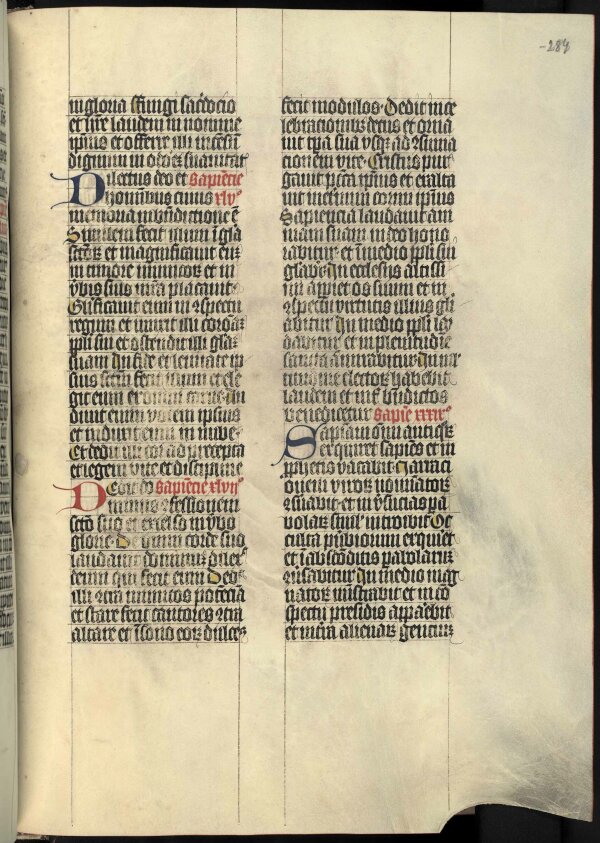 -284
in gloria fungi sacerdocio
et h're laudem in nomine
ipius et offerre illi incesū
dignum in odorē suauitatis
Dilectus deo et sapiēcie
hominibus cuius xlv
memoria in bn̄dictione ē
Similem fecit illum ī gla
sctōꝝ et magnificauit eū
in timore inimicoꝝ et in
ūbis suis mr̄a placauit
Glificauit eum in ꝯspectu
regum et iussit illi corā
ppli sui et ostendit illi glā
suam In fide et lenitate ip
sius sctm̄ fecit illum et ele
git eum ex omni carne
diuit enim vocem ipsius
et induxit eum in nube
Et dedit illi cor ad precepta
et legem vite et discipline
Dedit ꝯ sapiēcie xlvii
minus ꝯfessionem
sctō suo et excelso in ūbo
glorie De omni corde suo
laudauit dominum et dilex
deum qui fecit eum Dedit
illi ꝯtra inimicos potēcia
et stare fecit cantores ꝯtra
altare et ī sono eoꝝ dulces
fecit modulos Dedit in ce
lebracionibus decus et orna
uit tpa sua usqꝫ ad ꝯsuma
cionem vite Cristus pur
gauit pctā ipsius et exalta
uit in etnum cornu ipsius
Sapiencia laudauit ani
mam suam in deo hono
rabitur et ī medio ppli sui
glabr In ecclesiis altissi
mi apiet os suum et in
ꝯspectu virtutis illius gli
abitur In medio ppli
exaltabitur et in plenitudine
sancta admirabitur In ml
titudine electoꝝ habebit
laudem et int bn̄dictos
benedicetur sapiē xxxix
Sapiām omniū antiquoꝝ
exquiret sapiēs et in
prophetis vacabit Narraci
onem viroꝝ nominatoꝝ
ꝯseruabit et in ūsucias pa
rabolaꝝ simul introibit Oc
culta prouerbiorum exquiret
et ī absconditis parabolarum
ꝯuersabitur In medio mag
natoꝝ ministrabit et in cō
spectu presidis apparebit
et in tra alienaꝝ gentium